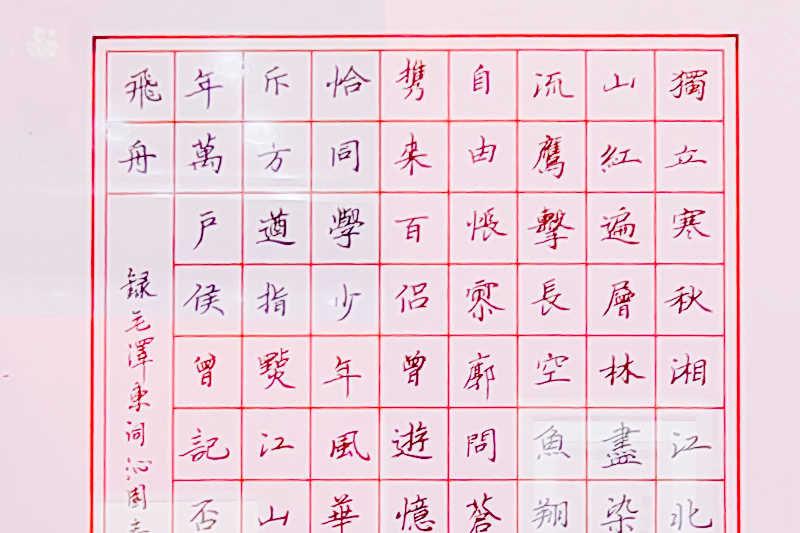 獨立寒秋湘江北
山紅遍層林盡染
流鷹擊長空魚翔
自由悵寥廓問蒼
携来百侣曾遊憶
恰同學少年風華
斥方遒指點江山
年萬戶侯曾記否
飛舟
録毛澤東词沁園